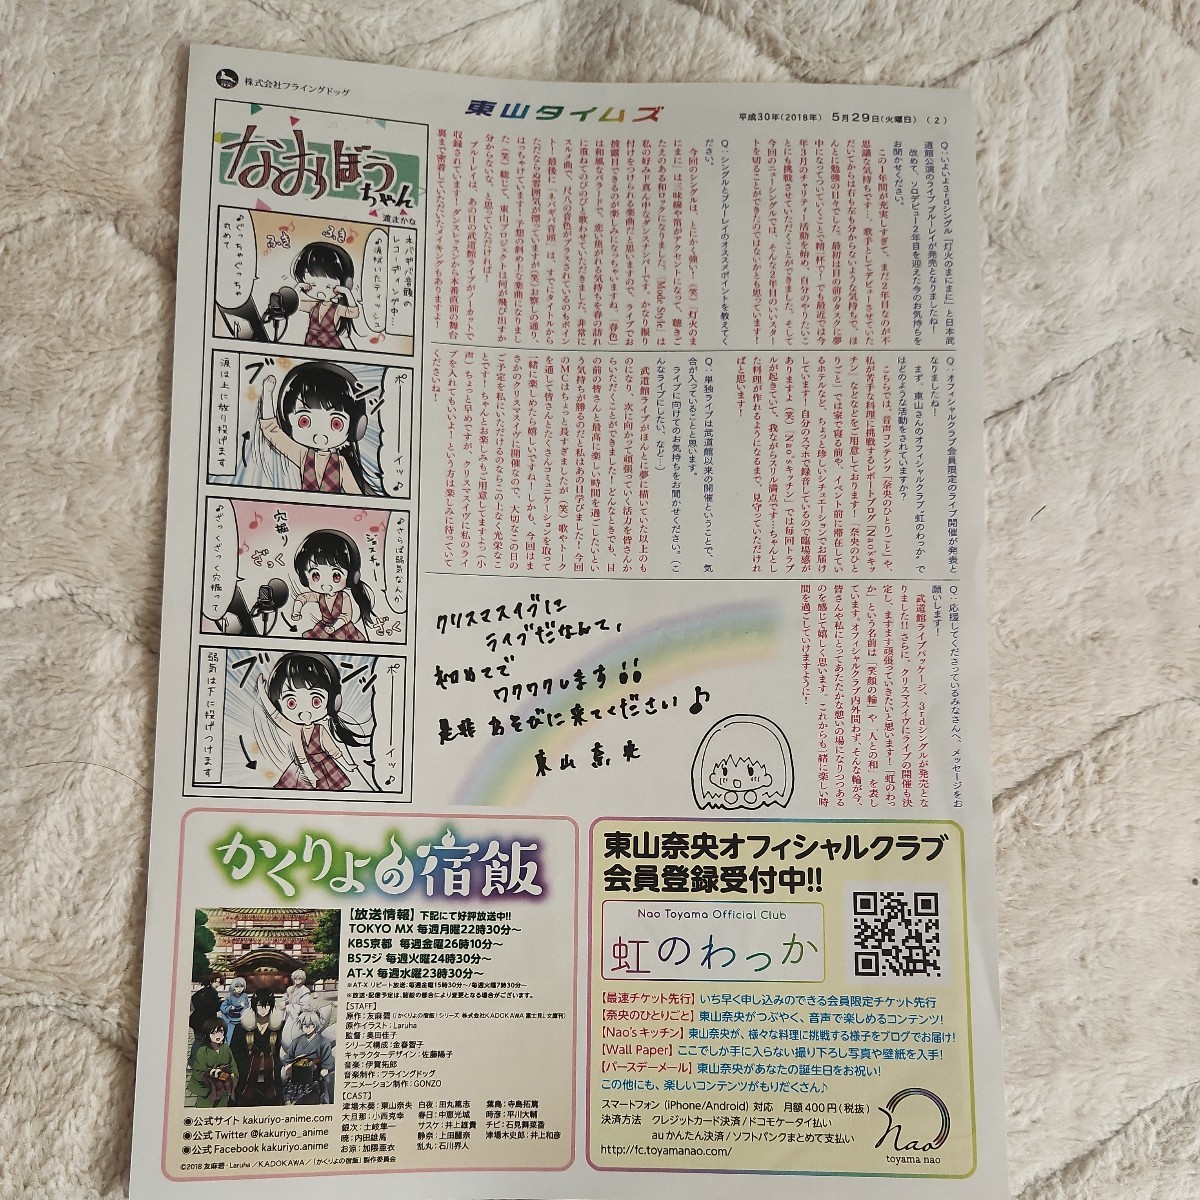 株式会社フライングドッグ
東山タイムズ
平成30年(2018年) 5月29日(火曜日) (2)
なおぼうちゃん
渡まかな
ネバギバ音頭のレコーディング中…
♪涙拭いたティッシュ
ふき
ふき
♪ぐっちゃぐっちゃ丸めて
ポーーイッ♪
ブンッ
涙は上に放り投げます
♪さらば弱気なんか
ジェスチャー
穴掘り
ざくっ
ざくっ
♪ざっくざっく穴掘って
ポーーイッ♪
ブンッ
弱気は下に投げつけます
Q:いよいよ3rdシングル『灯火のまにまに』と日本武
道館公演のライブブルーレイが発売となりましたね!
改めて、ソロデビュー2年目を迎えた今のお気持ちを
お聞かせください。
この1年間が充実しすぎて、まだ2年目なのが不
思議な気持ちです…。歌手としてデビューさせていた
だいてからは右も左も分からないような気持ちで、ほ
んとに勉強の日々でした。最初は目の前のタスクに夢
中になってついていくことで精一杯で!でも最近では今
年3月のチャリティー活動を始め、自分のやりたいこ
とにも挑戦させていただくことができました。そして
今回のニューシングルでは、そんな2年目のいいスター
トを切ることができたのではないかとも思っています!
Q:シングルとブルーレイのオススメポイントを教えてく
ださい。
今回のシングルは、とにかく強い!(笑)「灯火のま
にまに」は三味線や笛がアクセントになって、聴きご
たえのある和ロックになりました!「Mode Style」は
私の好みド真ん中なダンスナンバーです。かなり振り
付けをつけられる楽曲だと思いますので、ライブでお
披露目できるのが楽しみになっちゃいますね。「春色」
は和風なバラードで、恋い焦がれる気持ちを春の訪れ
に重ねてのびのびと歌わせていただきました。非常に
スルメ曲で、尺八の音色がプラスされているのもポイン
ト!最後に「ネバギバ音頭」は、すでにタイトルから
ただならぬ雰囲気が漂っていますが(笑)お察しの通り、
はっちゃけています!予想の斜め上な楽曲になりまし
た(笑)総じて、東山プロジェクトは何が飛び出すか
分からないな、と思っていただければ!
ブルーレイは、あの日の武道館ライブがノーカットで
収録されています!ダンスレッスンから本番直前の舞台
裏まで密着していただいたメイキングもありますよ!
Q:オフィシャルクラブ会員限定のライブ開催が発表と
なりましたね!
まず、東山さんのオフィシャルクラブ“虹のわっか”で
はどのような活動をされていますか?
こちらでは、音声コンテンツ「奈央のひとりごと」や、
私が苦手な料理に挑戦するレポートブログ「Nao'sキッ
チン」などなどをご用意しております!「奈央のひと
りごと」では家で寝る前や、イベント前に滞在してい
るホテルなど、ちょっと珍しいシチュエーションでお届け
しています!自分のスマホで録音しているので臨場感が
ありますよ(笑)「Nao'sキッチン」では毎回トラブ
ルが起きていて、我ながらスリル満点です…。ちゃんとし
た料理が作れるようになるまで、見守っていただけれ
ばと思います!
Q:単独ライブは武道館以来の開催ということで、気
合が入っていることと思います。
ライブに向けてのお気持ちをお聞かせください。(こ
んなライブにしたい、など…)
武道館ライブがほんとに夢に描いていた以上のも
のになり、次に向かって頑張っていく活力を皆さんか
らいただくことができました!どんなときでも、目
の前の皆さんと最高に楽しい時間を過ごしたいとい
う気持ちが勝るのだと私はあの日学びました!今回
のMCはちょっと長すぎましたが(笑)歌やトーク
を通して皆さんとたくさんコミュニケーションを取って
一緒に楽しめたら嬉しいですね!しかも、今回はま
さかのクリスマスイヴに開催なので、大切なこの日の
ご予定を私にいただけるのならこの上なく光栄なこ
とです!ちゃんとお楽しみもご用意してますよっ(小
声)ちょっと早めですが、クリスマスイヴに私のライ
ブを入れてもいいよ!という方は楽しみに待っていて
くださいね!
Q:応援してくださっているみなさんへ、メッセージをお
願いします!
武道館ライブパッケージ、3rdシングルが発売とな
りました!!さらに、クリスマスイヴにライブの開催も決
定し、ますます頑張っていきたいと思います!「虹のわっ
か」という名前は「笑顔の輪」や「人との和」を表し
ています。オフィシャルクラブ内外問わず、そんな輪が今、
皆さんや私にとってあたたかな憩いの場になりつつある
のを感じて嬉しく思います。これからも一緒に楽しい時
間を過ごしていけますように!
クリスマスイブに
ライブだなんて、
初めてで
ワクワクします!!
是非あそびに来てください♪
東山奈央
かくりよの宿飯
【放送情報】下記にて好評放送中!!
TOKYO MX 毎週月曜22時30分〜
KBS京都 毎週金曜26時10分〜
BSフジ 毎週火曜24時30分〜
AT-X 毎週水曜23時30分〜
※AT-X リピート放送:毎週金曜15時30分〜/毎週火曜7時30分〜
※放送・配信予定は、諸般の都合により変更となる場合がございます。
【STAFF】
原作:友麻碧(「かくりよの宿飯」シリーズ 株式会社KADOKAWA 富士見L文庫刊)
原作イラスト:Laruha
監督:奥田佳子
シリーズ構成:金春智子
キャラクターデザイン:佐藤陽子
音楽:伊賀拓郎
音楽制作:フライングドッグ
アニメーション制作:GONZO
【CAST】
津場木葵:東山奈央 白夜:田丸篤志 葉鳥:寺島拓篤
大旦那:小西克幸 春日:中恵光城 時彦:平川大輔
銀次:土岐隼一 サスケ:井上雄貴 チビ:石見舞菜香
暁:内田雄馬 静奈:上田麗奈 津場木史郎:井上和彦
お涼:加隈亜衣 乱丸:石川界人
◉公式サイト kakuriyo-anime.com
◉公式 Twitter @kakuriyo_anime
◉公式 Facebook kakuriyo.anime
©2018 友麻碧・Laruha/KADOKAWA/「かくりよの宿飯」製作委員会
東山奈央オフィシャルクラブ
会員登録受付中!!
Nao Toyama Official Club
虹のわっか
【最速チケット先行】いち早く申し込みのできる会員限定チケット先行
【奈央のひとりごと】東山奈央がつぶやく、音声で楽しめるコンテンツ!
【Nao'sキッチン】東山奈央が、様々な料理に挑戦する様子をブログでお届け!
【Wall Paper】ここでしか手に入らない撮り下ろし写真や壁紙を入手!
【バースデーメール】東山奈央があなたの誕生日をお祝い!
この他にも、楽しいコンテンツがもりだくさん♪
スマートフォン (iPhone/Android) 対応 月額400円(税抜)
決済方法 クレジットカード決済/ドコモケータイ払い
auかんたん決済/ソフトバンクまとめて支払い
http://fc.toyamanao.com/
Nao
toyama nao